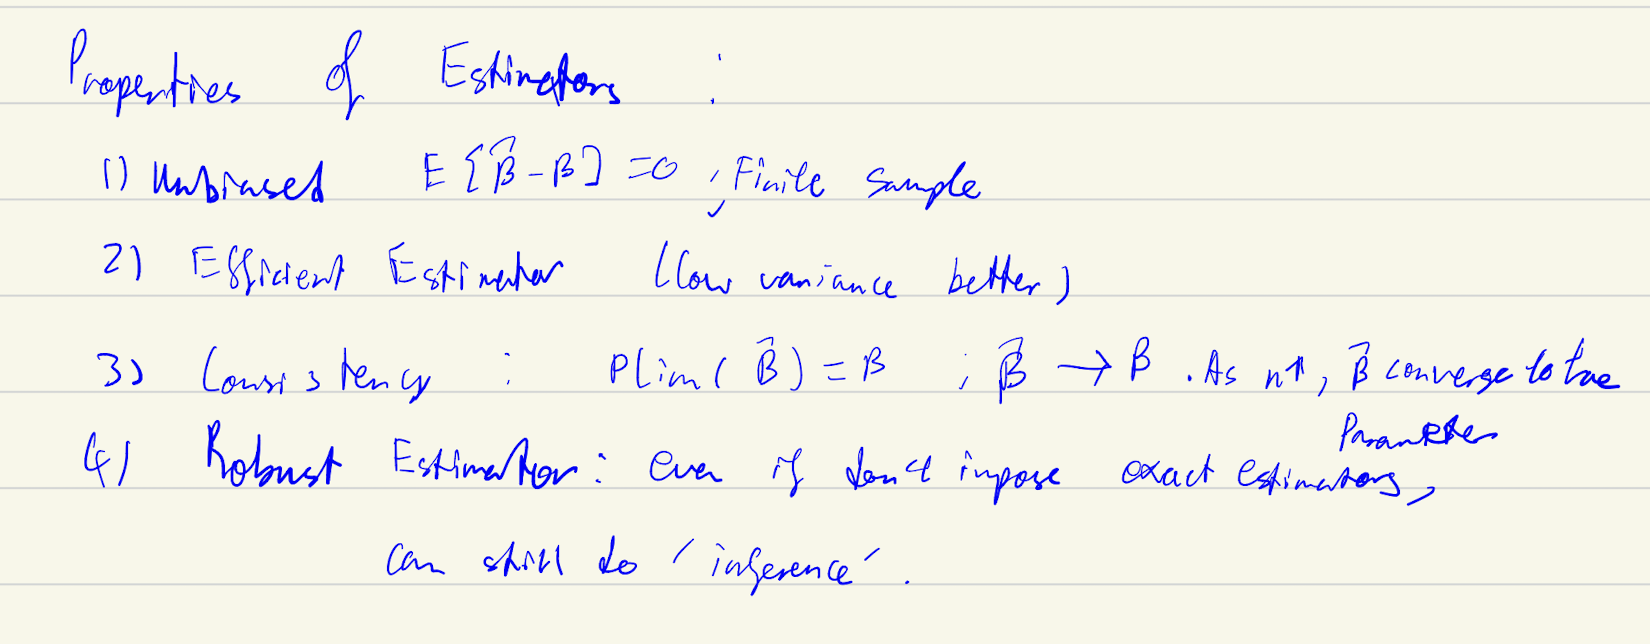 Properties of Estimators :
1) Unbiased E[β̂-β] =0 , Finite sample
2) Efficient Estimator (low variance better)
3) Consistency : Plim( β̂ ) = β ; β̂ → β . As n↑, β̂ converge to true
Parameter
4) Robust Estimation : even if don't impose exact estimators,
can still do 'inference'.